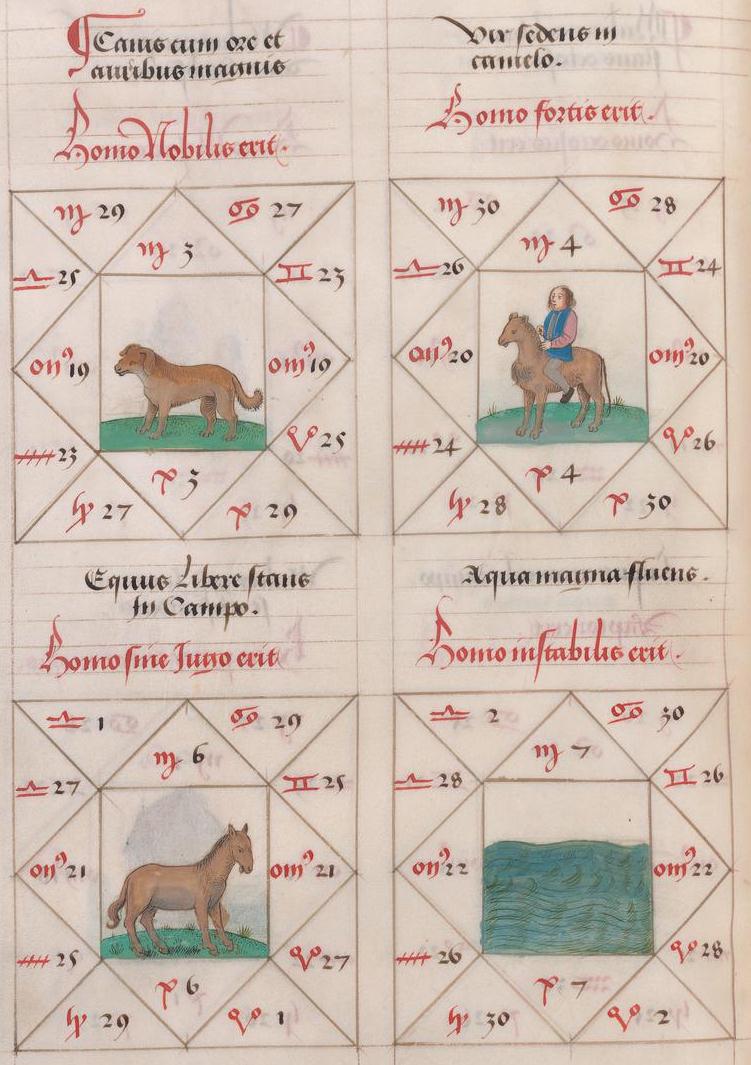 Canis cum ore et
auribus magnis
Homo Nobilis erit.
♍ 29
♋ 27
♍ 3
♎ 25
♊ 23
19
19
23
♉ 25
♓ 3
27
♓ 29
Vir sedens in
camelo.
Homo fortis erit.
♍ 30
♋ 28
♍ 4
♎ 26
♊ 24
20
20
24
♉ 26
♓ 4
28
♓ 30
Equus Libere stans
In Campo.
Homo sine Jugo erit
♎ 1
♋ 29
♍ 6
♎ 27
♊ 25
21
21
25
♉ 27
♓ 6
29
1
Aqua magna fluens.
Homo instabilis erit.
♎ 2
♋ 30
♍ 7
♎ 28
♊ 26
22
22
26
♉ 28
♓ 7
30
2